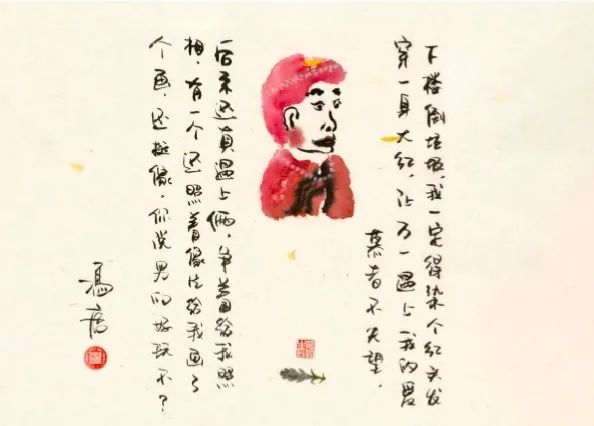 下楼倒垃圾，我一定得染个红头发
穿一身大红，让万一遇上我的爱
慕者不失望。
后来还真遇上俩，争着给我照
相，有一个还照着像片给我画了
个画，还挺像，你说男的好玩不？
冯